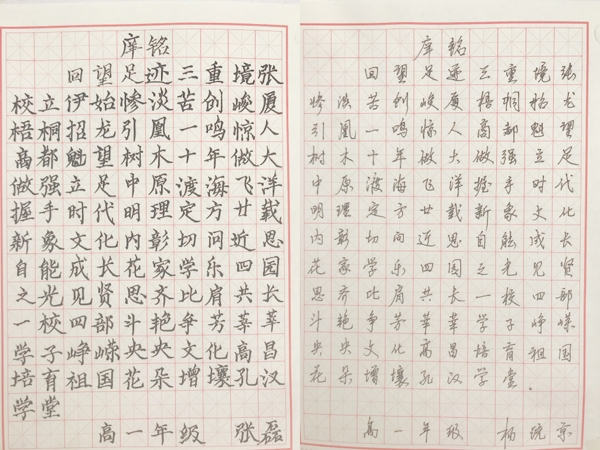 庠铭
回望足迹三重境张
校立伊始惨淡苦创峻厦
梧桐招龙引凰一鸣惊人
高都魁望树木十年做大
做强立足中原渡海飞洋
握手时代明理定方廿载
新象文化内彰切问近思
自能成长花家学乐四国
之光见贤思齐比肩共长
一校四部斗艳争芳莘莘
学子峥嵘央央文化高昌
培育祖国花朵增壤孔汉
学堂
高一年级 张磊
庠铭
回望足迹三重境张
惨淡苦创峻厦梧桐招龙
引凰一鸣惊人高都魁望
树木十年做大做强立足
中原渡海飞洋握手时代
明理定方廿载新象文化
内彰切问近思自能成长
花家学乐四国之光见贤
思齐比肩共长一校四部
斗艳争芳莘莘学子峥嵘
央央文化高昌培育祖国
花朵增壤孔汉学堂.
高一年级